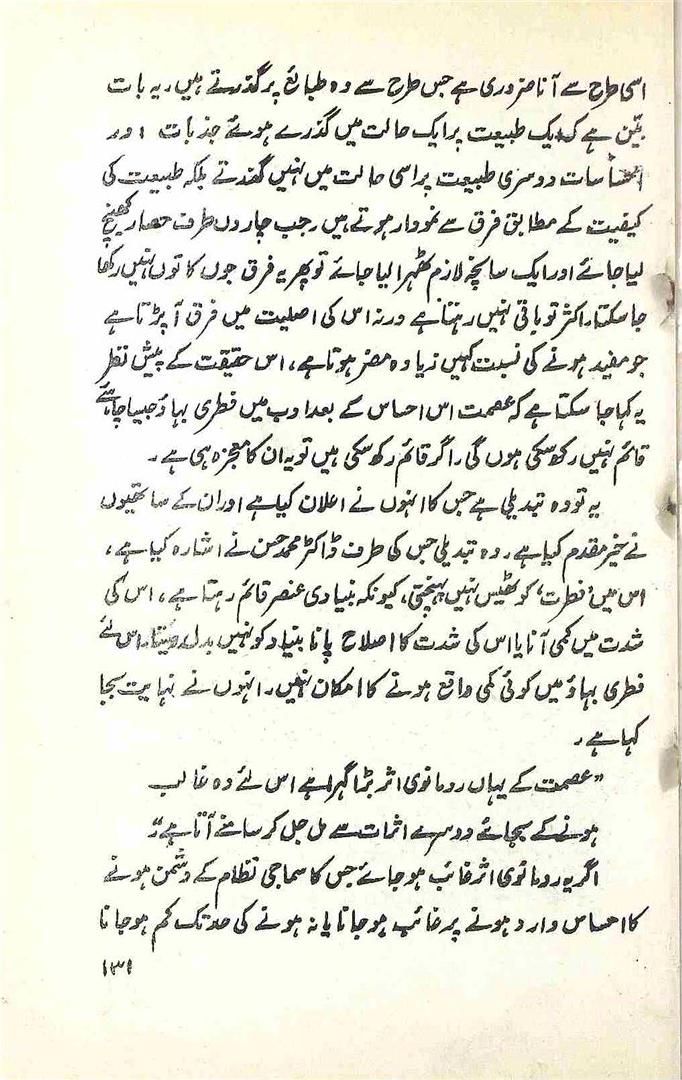 اسی طرح سے آنا ضروری ہے جس طرح سے وہ طبائع پر گذرتے ہیں، یہ بات
بیّن ہے کہ ایک طبیعت پر ایک حالت میں گذرے ہوئے جذبات اور
احساسات دوسری طبیعت پر اسی حالت میں نہیں گذرتے بلکہ طبیعت کی
کیفیت کے مطابق فرق سے نمودار ہوتے ہیں، جب چاروں طرف حصار کھینچ
لیا جائے اور ایک سانچہ لازم ٹھہرا لیا جائے تو پھر یہ فرق جوں کا توں نہیں رکھا
جا سکتا، اکثر تو باقی نہیں رہتا ہے ورنہ اس کی اصلیت میں فرق آ پڑتا ہے
جو مفید ہونے کی نسبت کہیں زیادہ مضر ہوتا ہے، اس حقیقت کے پیش نظر
یہ کہا جا سکتا ہے کہ عصمت اس احساس کے بعد ادب میں فطری بہاؤ جیسا چاہئے
قائم نہیں رکھ سکی ہوں گی، اگر قائم رکھ سکی ہیں تو یہ ان کا معجزہ ہی ہے۔
یہ تو وہ تبدیلی ہے جس کا انہوں نے اعلان کیا ہے اور ان کے ساتھیوں
نے خیر مقدم کیا ہے، وہ تبدیلی جس کی طرف ڈاکٹر محمد حسن نے اشارہ کیا ہے،
اس میں ’فطرت‘ کو ٹھیس نہیں پہنچتی، کیونکہ بنیادی عنصر قائم رہتا ہے، اس کی
شدت میں کمی آنا یا اس کی شدت کا اصلاح پانا بنیاد کو نہیں بدل دیتا، اس لئے
فطری بہاؤ میں کوئی کمی واقع ہونے کا امکان نہیں، انہوں نے نہایت بجا
کہا ہے،
”عصمت کے یہاں رومانوی اثر بڑا گہرا ہے اس لئے وہ غالب
ہونے کے بجائے دوسرے اثرات سے مل جل کر سامنے آتا ہے“
اگر یہ رومانوی اثر غائب ہو جائے جس کا سماجی نظام کے دشمن ہونے
کا احساس وارد ہونے پر غائب ہو جانا یا نہ ہونے کی حد تک کم ہو جانا
۱۳۱